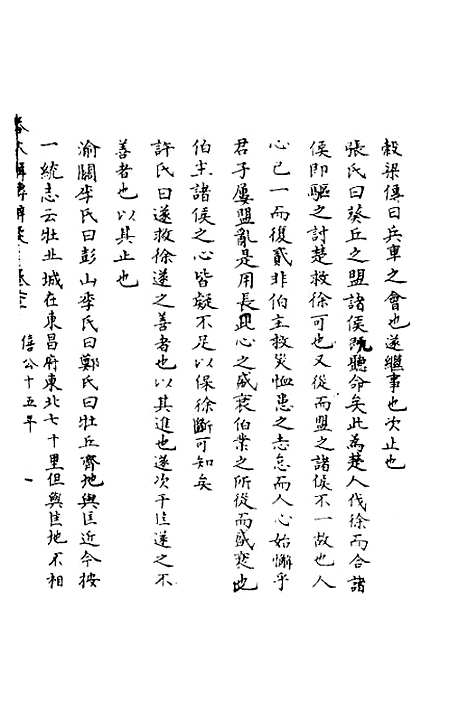 穀梁傳曰兵車之會也遂繼事也次止也
張氏曰葵丘之盟諸侯既聽命矣此為楚人伐徐而合諸
侯即驅之討楚救徐可也又從而盟之諸侯不一故也人
心已一而復貳非伯主救災恤患之志怠而人心始懈乎
君子屢盟亂是用長此心之盛衰伯業之所從而盛衰也
伯主諸侯之心皆疑不足以保徐斷可知矣
許氏曰遂救徐遂之善者也以其進也遂次于匡遂之不
善者也以其止也
渝關李氏曰彭山李氏曰鄭氏曰牡丘齊地與匡近今按
一統志云牡丘城在東昌府東北七十里但與匡地不相
春秋輯傳辨疑
僖公十五年 一